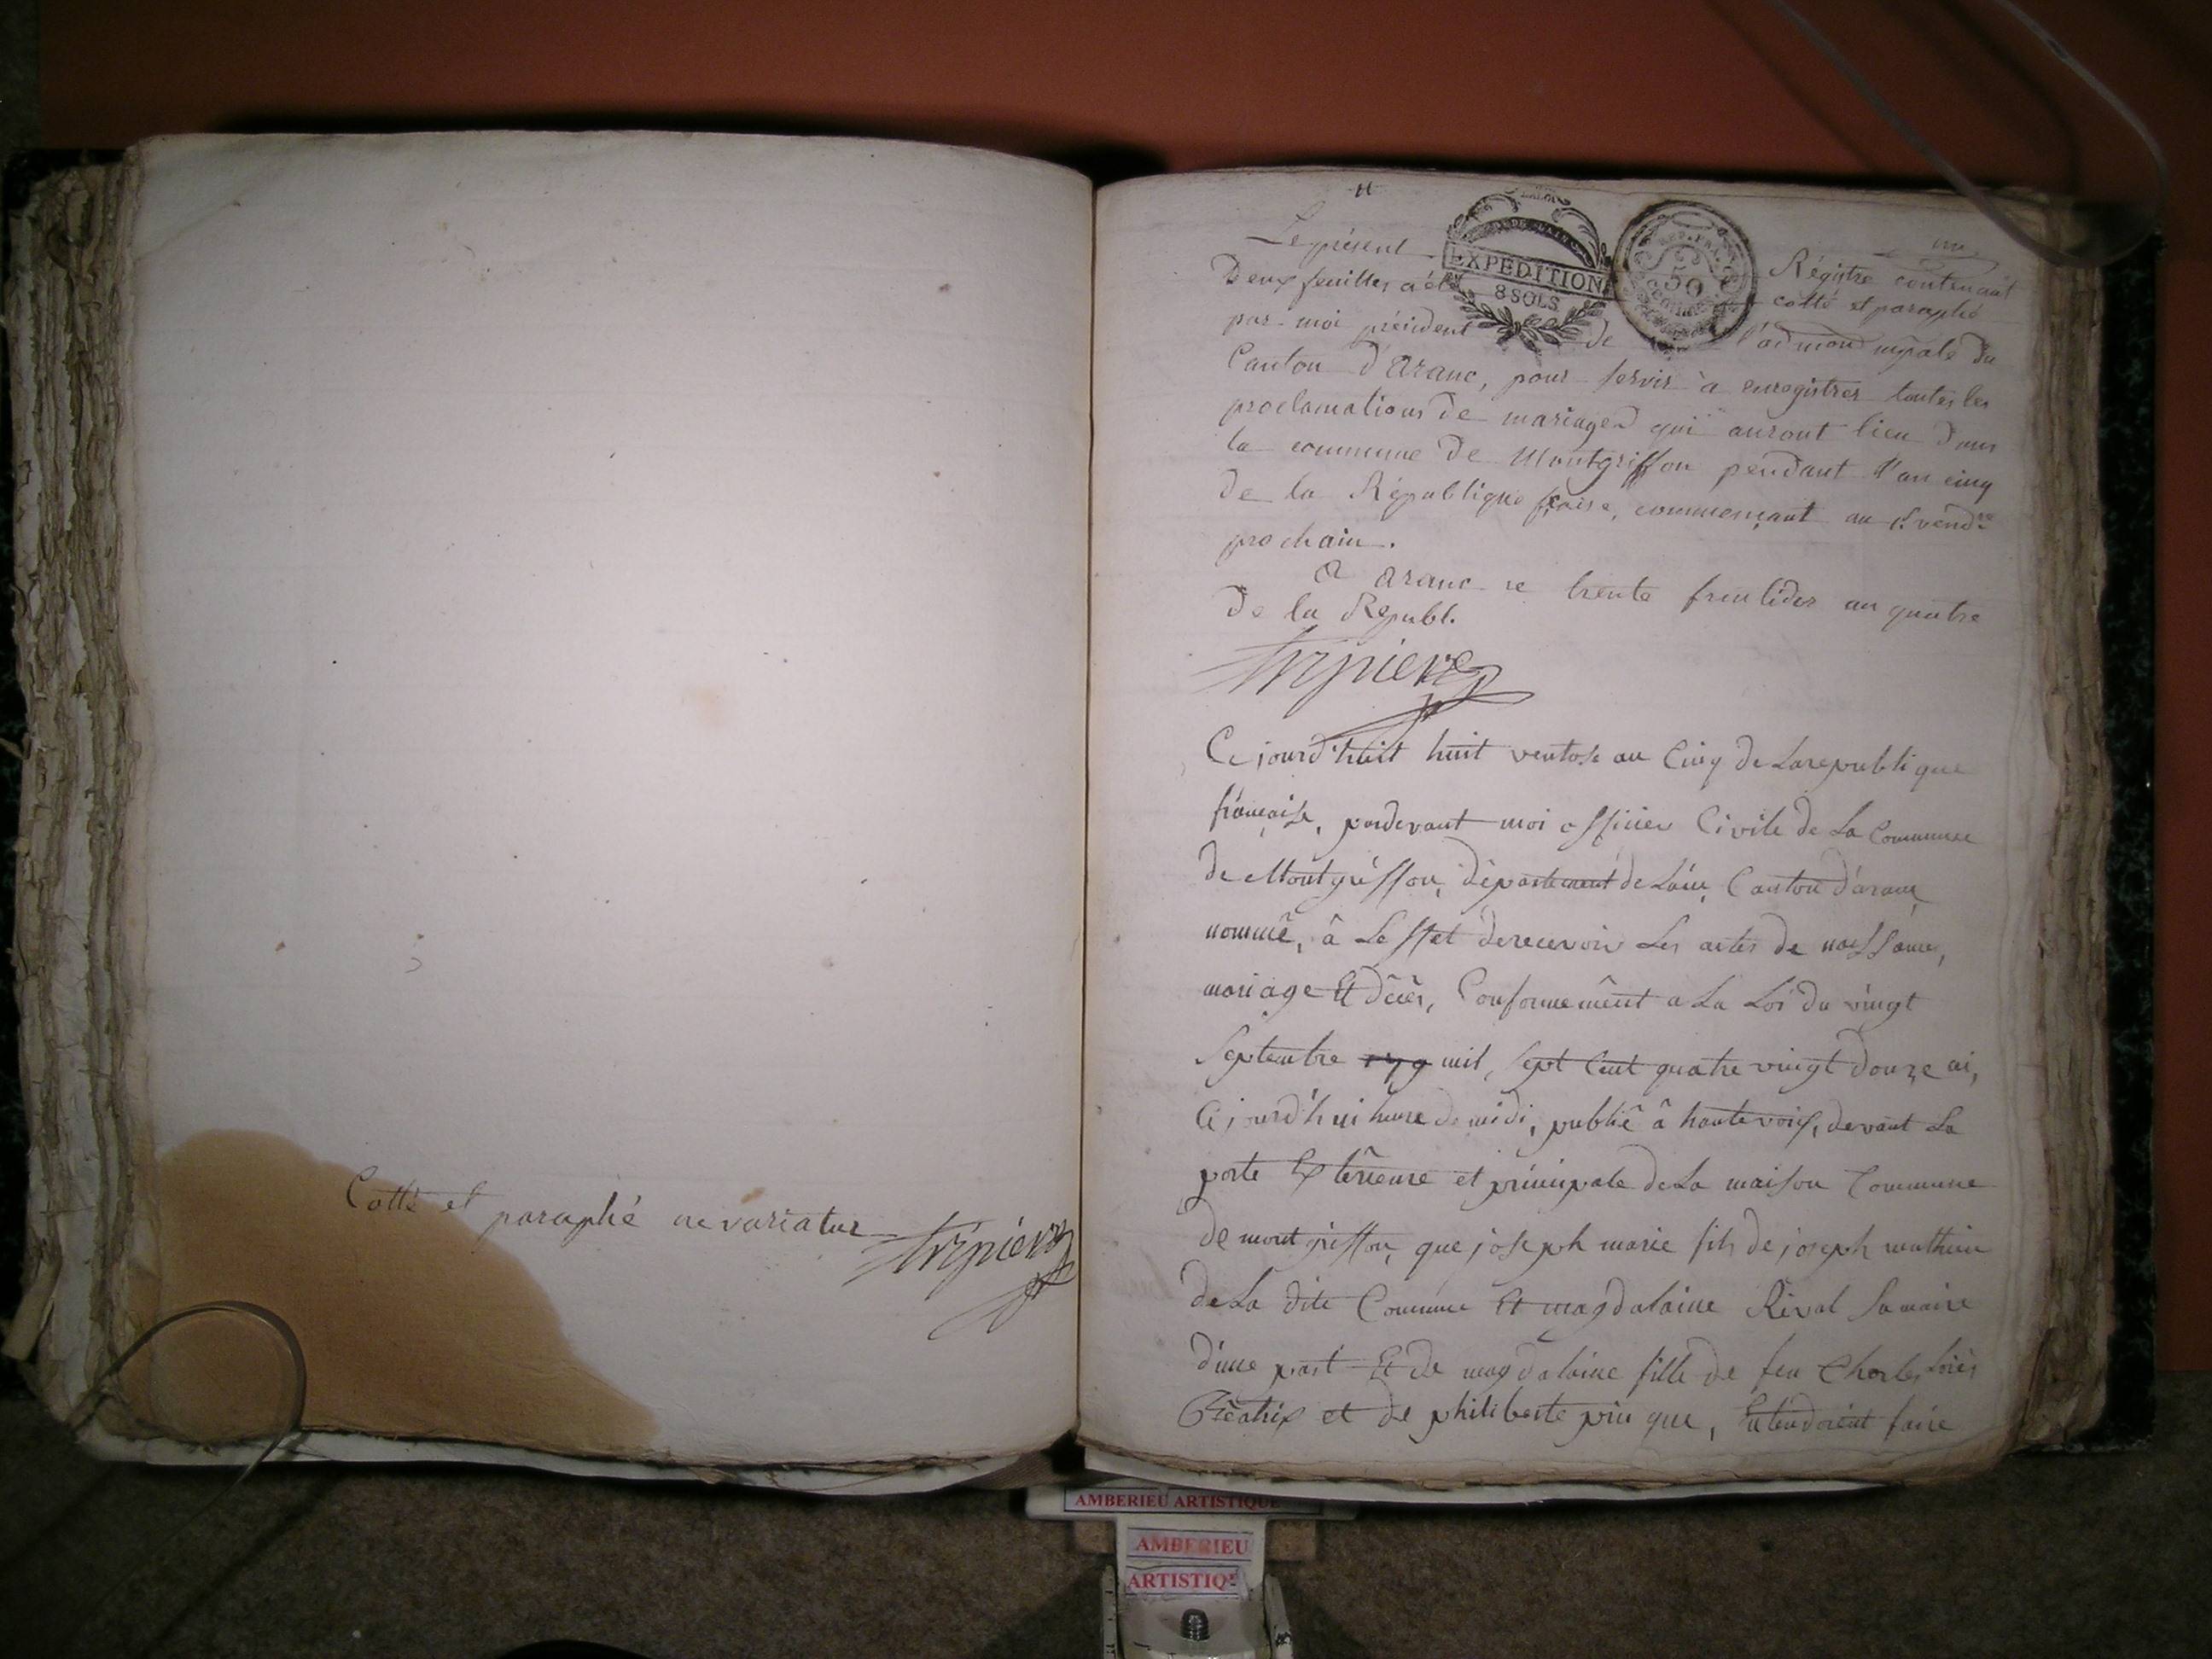 Cotté et paraphé ne variatur
un
Le présent Régistre contenant
EXPEDITION
8 SOLS
REP. FRA.
50
CENTIMES
Deux feuilles a été cotté et paraphé
par moi président de l'admon mpale du
Canton d'Aranc, pour servir a enregistrer toutes les
proclamations de mariages qui auront lieu dans
la commune de Montgriffon pendant l'an cinq
de la République fçaise, commençant au 1.er vend.re
prochain.
A Aranc ce trente fructidor an quatre
de la Republ.
Ce jourd'huit huit ventose an Cinq de La republique
françaisse, pardevant moi officier Civile de La Commune
de Montgriffon, département de L'ain, Canton d'aranc
nommé, â Leffet de recevoir Les actes de naissance,
mariage Et décès, Conformement a La Loi du vingt
Septembre mil, sept Cent quatre vingt douze ai,
Ce jourd'hui heure de midi, publié â haute voix, devant La
porte Extérieure et principale de La maison Commune
de montgriffon, que joseph marie fils de joseph
de La dite Commune Et magdalaine Rival
d'une part Et de magdalaine fille de feu Charles
et de philiberte que, Entendoient faire
AMBERIEU ARTISTIQUE
AMBERIEU
ARTISTIQ